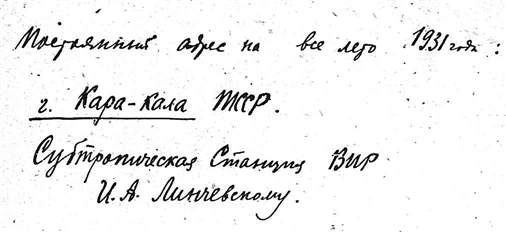 Постоянный адрес на все лето 1931 года:
г. Кара-Кала ТССР.
Субтропическая Станция ВИР
И. А. Линчевскому.